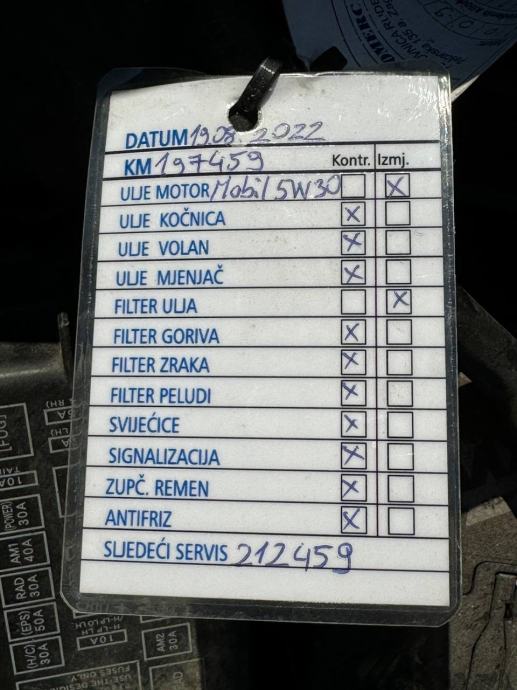 DATUM 19.08.2022
KM 197459 Kontr. Izmj.
ULJE MOTOR Mobil 5W30 X
ULJE KOČNICA X
ULJE VOLAN X
ULJE MJENJAČ X
FILTER ULJA X
FILTER GORIVA X
FILTER ZRAKA X
FILTER PELUDI X
SVIJEĆICE X
SIGNALIZACIJA X
ZUPČ. REMEN X
ANTIFRIZ X
SLJEDEĆI SERVIS 212459
[FOG]
10A
(POWER) 30A
AM1 40A
RAD 30A
(EPS) 50A
(H/C) 30A
10A
AM2 30A
FUSES ONLY